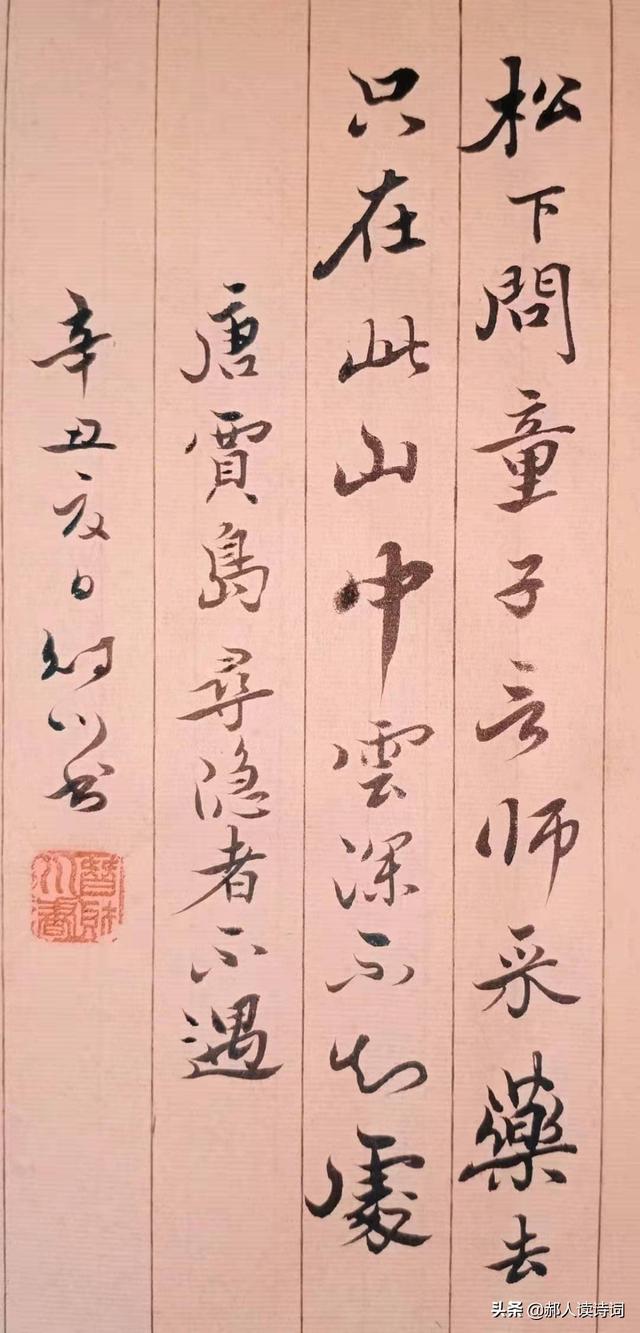 松下問童子言师采藥去
只在此山中雲深不知處
唐賈島尋隐者不遇
辛丑夏日财川书
头条 @郝人读诗词